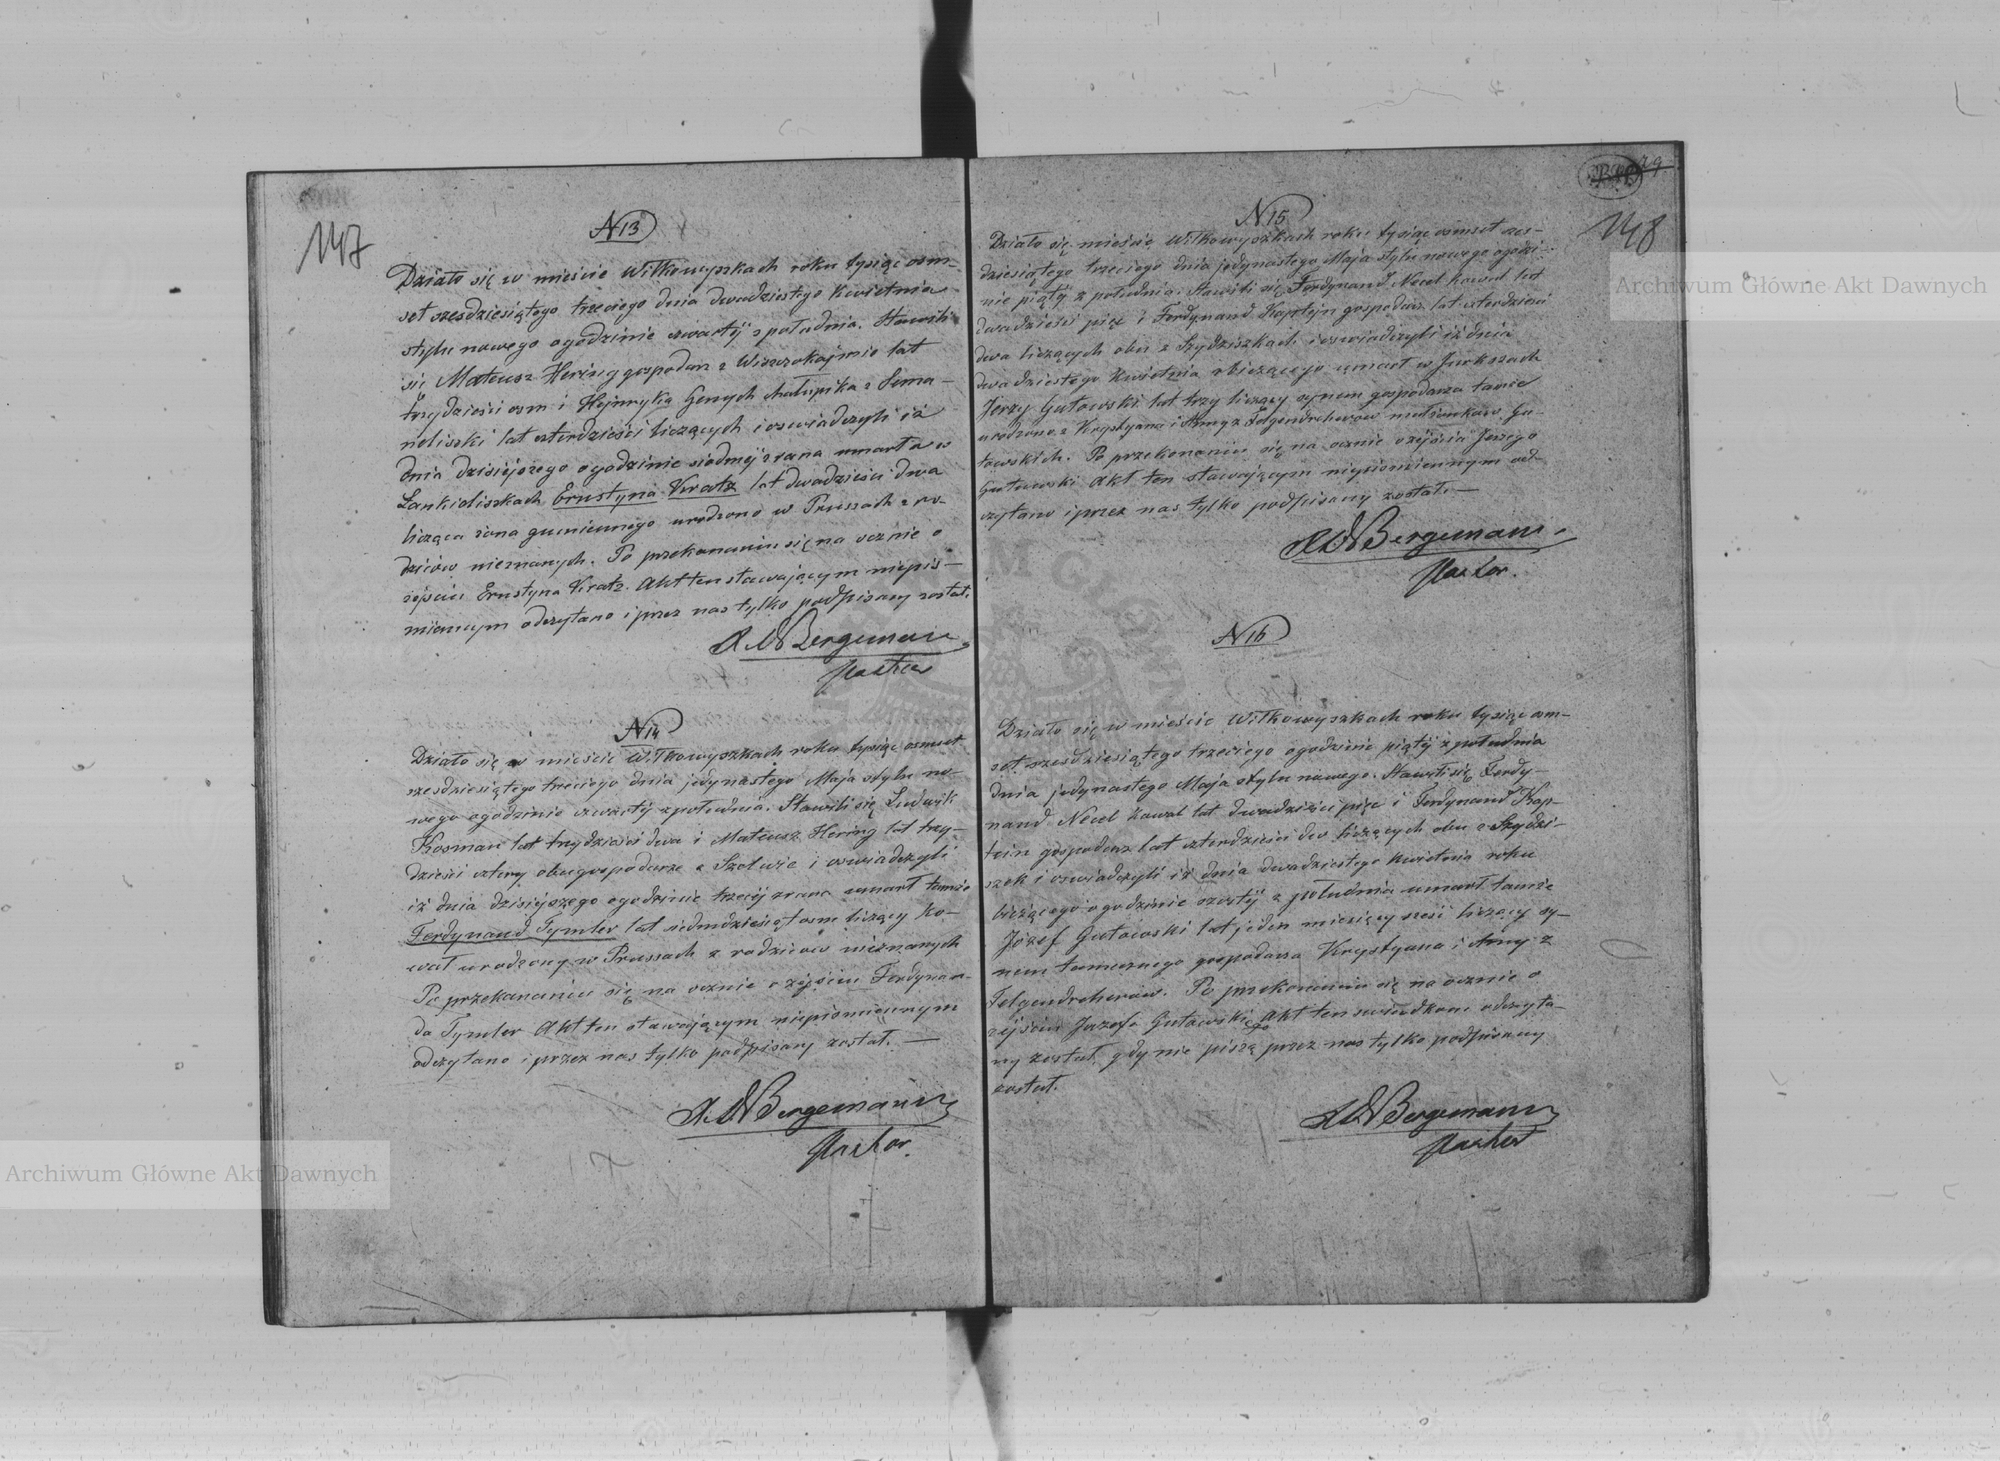 147
N 13
Działo się w mieście Wiłkowyszkach roku tysiąc osm-
set szesdziesiątego trzeciego dnia dwudziestego Kwietnia
stylu nowego ogodzinie czwartéj z południa. Stawili
się Mateusz Hering gospodarz z lat
trzydzieści osm i Hejnryka z
lat czterdzieści liczących i oswiadczyli iż
dnia dzisiejszego ogodzinie siodmej z rana umarła w
Lankieliszkach Ernstyna lat dwadzieścia dwa
licząca żona gumiennego urodzona w Prussach z ro-
dziców nieznanych. Po przekonaniu się na ocznie o
zejściu Ernstyna Akt ten stawającym niepis-
miennym odczytano i przez nas tylko podpisany został.
Bergemann
Pastor
N 14
Działo się w mieście Wiłkowyszkach roku tysiąc osmset
szesdziesiątego trzeciego dnia jedynastego Maja stylu no-
wego ogodzinie czwartéj z południa. Stawili się Ludwik
Kosman lat trzydzieści dwa i Mateusz Hering lat trzy-
dzieści cztery obu gospodarze z i oswiadczyli
iż dnia dzisiejszego ogodzinie trzeciéj z rana umarł tamże
Ferdynand Tymler lat siedmdziesiąt osm liczący ko-
wal urodzony w Prussach z rodziców nieznanych
Po przekonaniu się na ocznie o zejściu Ferdynan-
da Tymler Akt ten stawającym niepismiennym
odczytano i przez nas tylko podpisany został. —
Bergemann
Pastor.
148
N 15
Działo się mieście Wiłkowyszkach roku tysiąc osmset szes-
dziesiątego trzeciego dnia jedynastego Maja stylu nowego ogodzi-
nie piątéj z południa. Stawili się Ferdynand Necel kowal lat
dwadzieścia pięć i Ferdynand Kaptejn gospodarz lat czterdzieści
dwa liczących obu z Szydziszkach i oswiadczyli iż dnia
dwudziestego Kwietnia r. bieżącego umarł w Jurkszach
Jerzy Gutowski lat trzy liczący synem gospodarza tamże
urodzone z Krystyana i Anny z małżonków Gu-
towskich. Po przekonaniu się na ocznie o zejściu Jerzego
Gutowski Akt ten stawającym niepismiennym od-
czytano i przez nas tylko podpisany został. —
Bergemann
Pastor.
N 16
Działo się w mieście Wiłkowyszkach roku tysiąc osm-
set szesdziesiątego trzeciego ogodzinie piątéj z południa
dnia jedynastego Maja stylu nowego. Stawili się Ferdy-
nand Necel kowal lat dwadzieścia pięć i Ferdynand Kap-
tein gospodarz lat czterdzieści dwa liczących obu z Szydzi-
szek i oswiadczyli iż dnia dwudziestego Kwietnia roku
bieżącego ogodzinie szostéj z południa umarł tamże
Józef Gutowski lat jeden miesięcy sześć liczący sy-
nem tamecznego gospodarza Krystyana i Anny z
Po przekonaniu się na ocznie o
zejściu Józefa Gutowskiego Akt ten swiadkom odczyta-
ny został, gdy nie piszą przez nas tylko podpisany
został.
Bergemann
Pastor
Archiwum Główne Akt Dawnych
Archiwum Główne Akt Dawnych